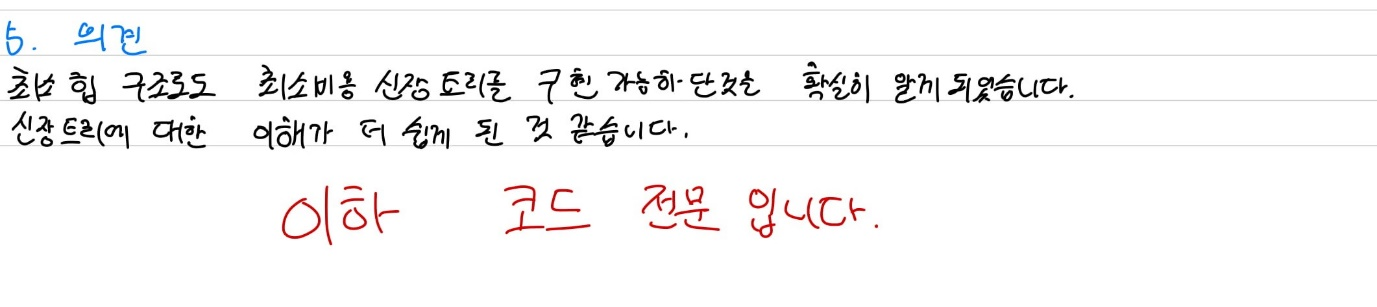 5. 의견
최소 힙 구조로도 최소비용 신장 트리를 구현 가능하단것을 확실히 알게 되었습니다.
신장트리에 대한 이해가 더 쉽게 된 것 같습니다.
이하 코드 전문 입니다.